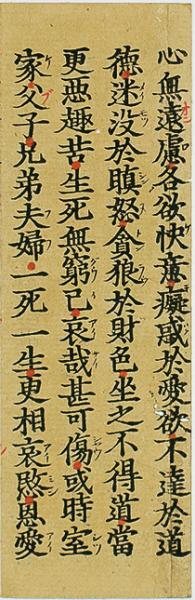 心無遠慮各欲快意癡惑於愛欲不達於道
德迷没於瞋怒貪狼於財色坐之不得道當
更悪趣苦生死無窮已哀哉甚可傷或時室
家父子兄弟夫婦一死一生更相哀愍恩愛